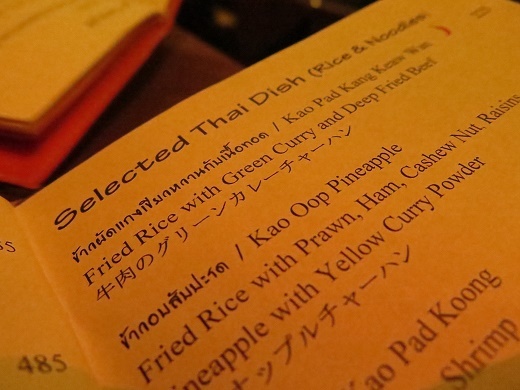 Selected Thai Dish (Rice & Noodles)
ข้าวผัดแกงเขียวหวานกับเนื้อทอด / Kao Pad Kang Keaw Wan
Fried Rice with Green Curry and Deep Fried Berf
牛肉のグリーンカレーチャーハン
ข้าวอบสับปะรด / Kao Oop Pineapple
Fried Rice with Prawn, Ham, Cashew Nut, Raisins
ineapple with Yellow Curry Powder
ナップルチャーハン
Kao Pad Koong
Shrimp
485